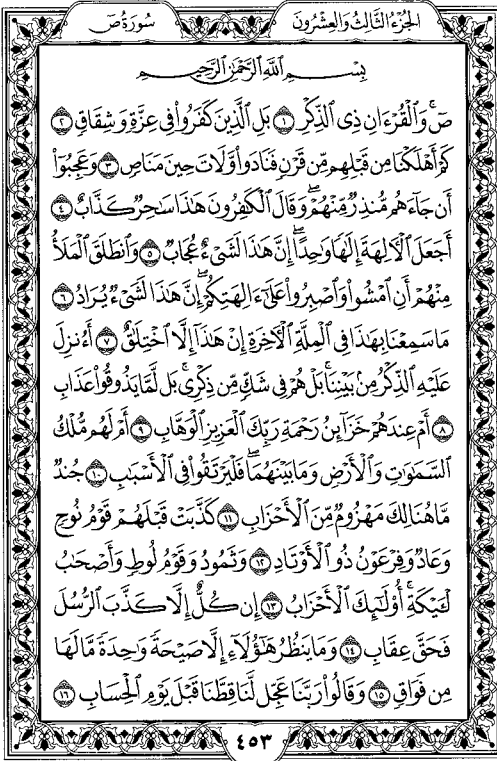 الجزء الثالث والعشرون
سورة ص
بِسْمِ ٱللَّهِ ٱلرَّحْمَٰنِ ٱلرَّحِيمِ
صٓ ۚ وَٱلْقُرْءَانِ ذِى ٱلذِّكْرِ ١ بَلِ ٱلَّذِينَ كَفَرُوا۟ فِى عِزَّةٍ وَشِقَاقٍ ٢
كَمْ أَهْلَكْنَا مِن قَبْلِهِم مِّن قَرْنٍ فَنَادَوا۟ وَّلَاتَ حِينَ مَنَاصٍ ٣ وَعَجِبُوٓا۟
أَن جَآءَهُم مُّنذِرٌ مِّنْهُمْ ۖ وَقَالَ ٱلْكَٰفِرُونَ هَٰذَا سَٰحِرٌ كَذَّابٌ ٤
أَجَعَلَ ٱلْءَالِهَةَ إِلَٰهًا وَٰحِدًا ۖ إِنَّ هَٰذَا لَشَىْءٌ عُجَابٌ ٥ وَٱنطَلَقَ ٱلْمَلَأُ
مِنْهُمْ أَنِ ٱمْشُوا۟ وَٱصْبِرُوا۟ عَلَىٰٓ ءَالِهَتِكُمْ ۖ إِنَّ هَٰذَا لَشَىْءٌ يُرَادُ ٦
مَا سَمِعْنَا بِهَٰذَا فِى ٱلْمِلَّةِ ٱلْءَاخِرَةِ إِنْ هَٰذَآ إِلَّا ٱخْتِلَٰقٌ ٧ أَءُنزِلَ
عَلَيْهِ ٱلذِّكْرُ مِنۢ بَيْنِنَا ۚ بَلْ هُمْ فِى شَكٍّ مِّن ذِكْرِى ۖ بَل لَّمَّا يَذُوقُوا۟ عَذَابِ
٨ أَمْ عِندَهُمْ خَزَآئِنُ رَحْمَةِ رَبِّكَ ٱلْعَزِيزِ ٱلْوَهَّابِ ٩ أَمْ لَهُم مُّلْكُ
ٱلسَّمَٰوَٰتِ وَٱلْأَرْضِ وَمَا بَيْنَهُمَا ۖ فَلْيَرْتَقُوا۟ فِى ٱلْأَسْبَٰبِ ١٠ جُندٌ
مَّا هُنَالِكَ مَهْزُومٌ مِّنَ ٱلْأَحْزَابِ ١١ كَذَّبَتْ قَبْلَهُمْ قَوْمُ نُوحٍ
وَعَادٌ وَفِرْعَوْنُ ذُو ٱلْأَوْتَادِ ١٢ وَثَمُودُ وَقَوْمُ لُوطٍ وَأَصْحَٰبُ
لْـَٔيْكَةِ ۚ أُو۟لَٰٓئِكَ ٱلْأَحْزَابُ ١٣ إِن كُلٌّ إِلَّا كَذَّبَ ٱلرُّسُلَ
فَحَقَّ عِقَابِ ١٤ وَمَا يَنظُرُ هَٰٓؤُلَآءِ إِلَّا صَيْحَةً وَٰحِدَةً مَّا لَهَا
مِن فَوَاقٍ ١٥ وَقَالُوا۟ رَبَّنَا عَجِّل لَّنَا قِطَّنَا قَبْلَ يَوْمِ ٱلْحِسَابِ ١٦
٤٥٣